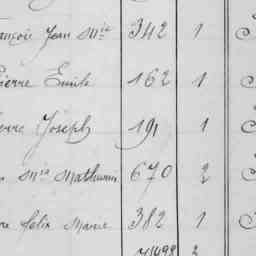 ançois Jean Mie 342 1
Pierre Emile 162 1
erre Joseph 191 1
Mia Mathurin 670 2
re félix Marie 382 1
2